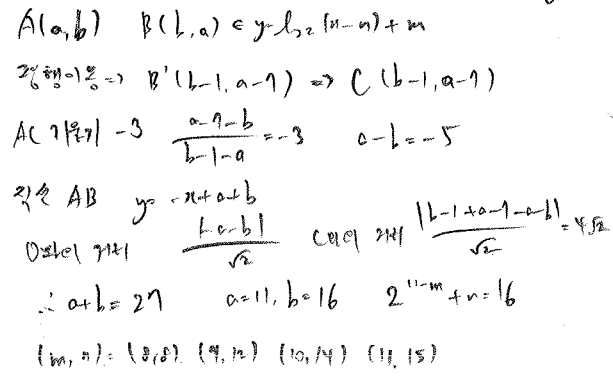 A(a,b) B(b,a) ∈ y=log₂(x-n)+m
평행이동 => B'(b-1, a-7) => C(b-1, a-7)
AC 기울기 -3 (a-7-b)/(b-1-a) = -3 a-b=-5
직선 AB y=-x+a+b
O와의 거리 |-a-b|/√2 C와의 거리 |b-1+a-7-a-b|/√2 = 4√2
∴ a+b=27 a=11, b=16 2^(11-m)+n=16
(m, n): (8,8) (9,12) (10,14) (11,15)